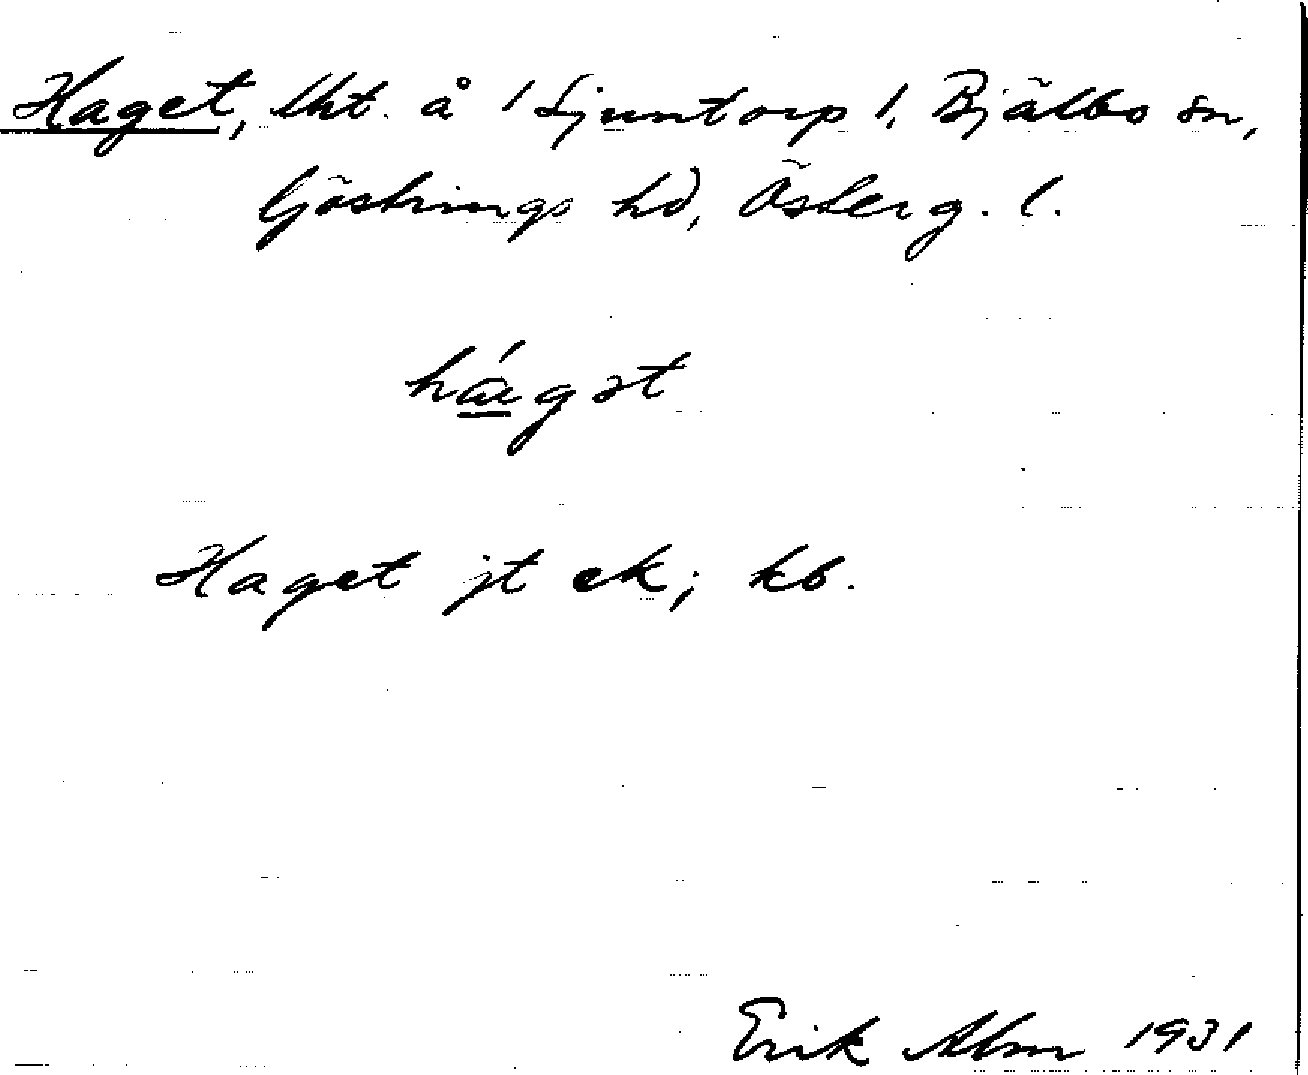 Haget, lht. å 1 Ljuntorp 1, Bjälbo sn,
Göstrings hd, Österg. l.
há̲gət
Haget jt ek; kb.
Erik Abm 1931